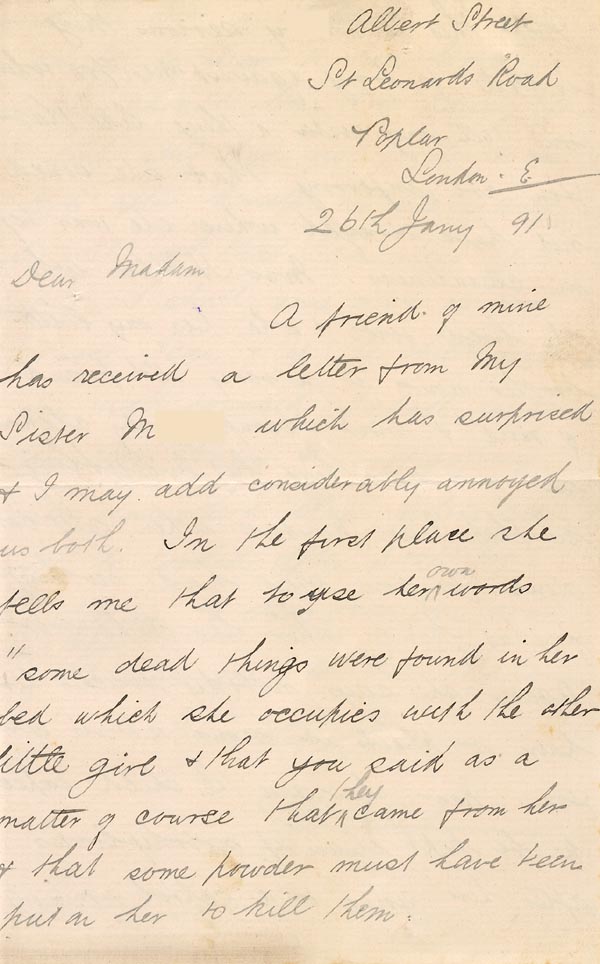 Albert Street
St Leonards Road
Poplar
London. E
26th Jany 91
Dear Madam
A friend of mine
has received a letter from My
Sister M which has surprised
& I may add considerably annoyed
us both. In the first place she
tells me that to use her own words
"some dead things were found in her
bed which she occupies with the other
little girl & that you said as a
matter of course that they came from her
& that some powder must have been
put on her to kill them.